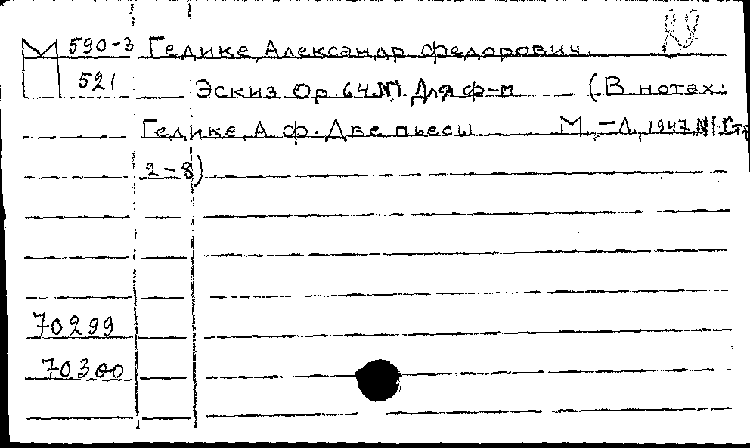 М 590-3 Гедике, Александр Федорович.
521 Эскиз Op 64 №1 Для ф-п (В нотах:
Гедике, А. Ф. Две пьесы М.-Л, 1947 №1 Стр
2-8)
70299
70300